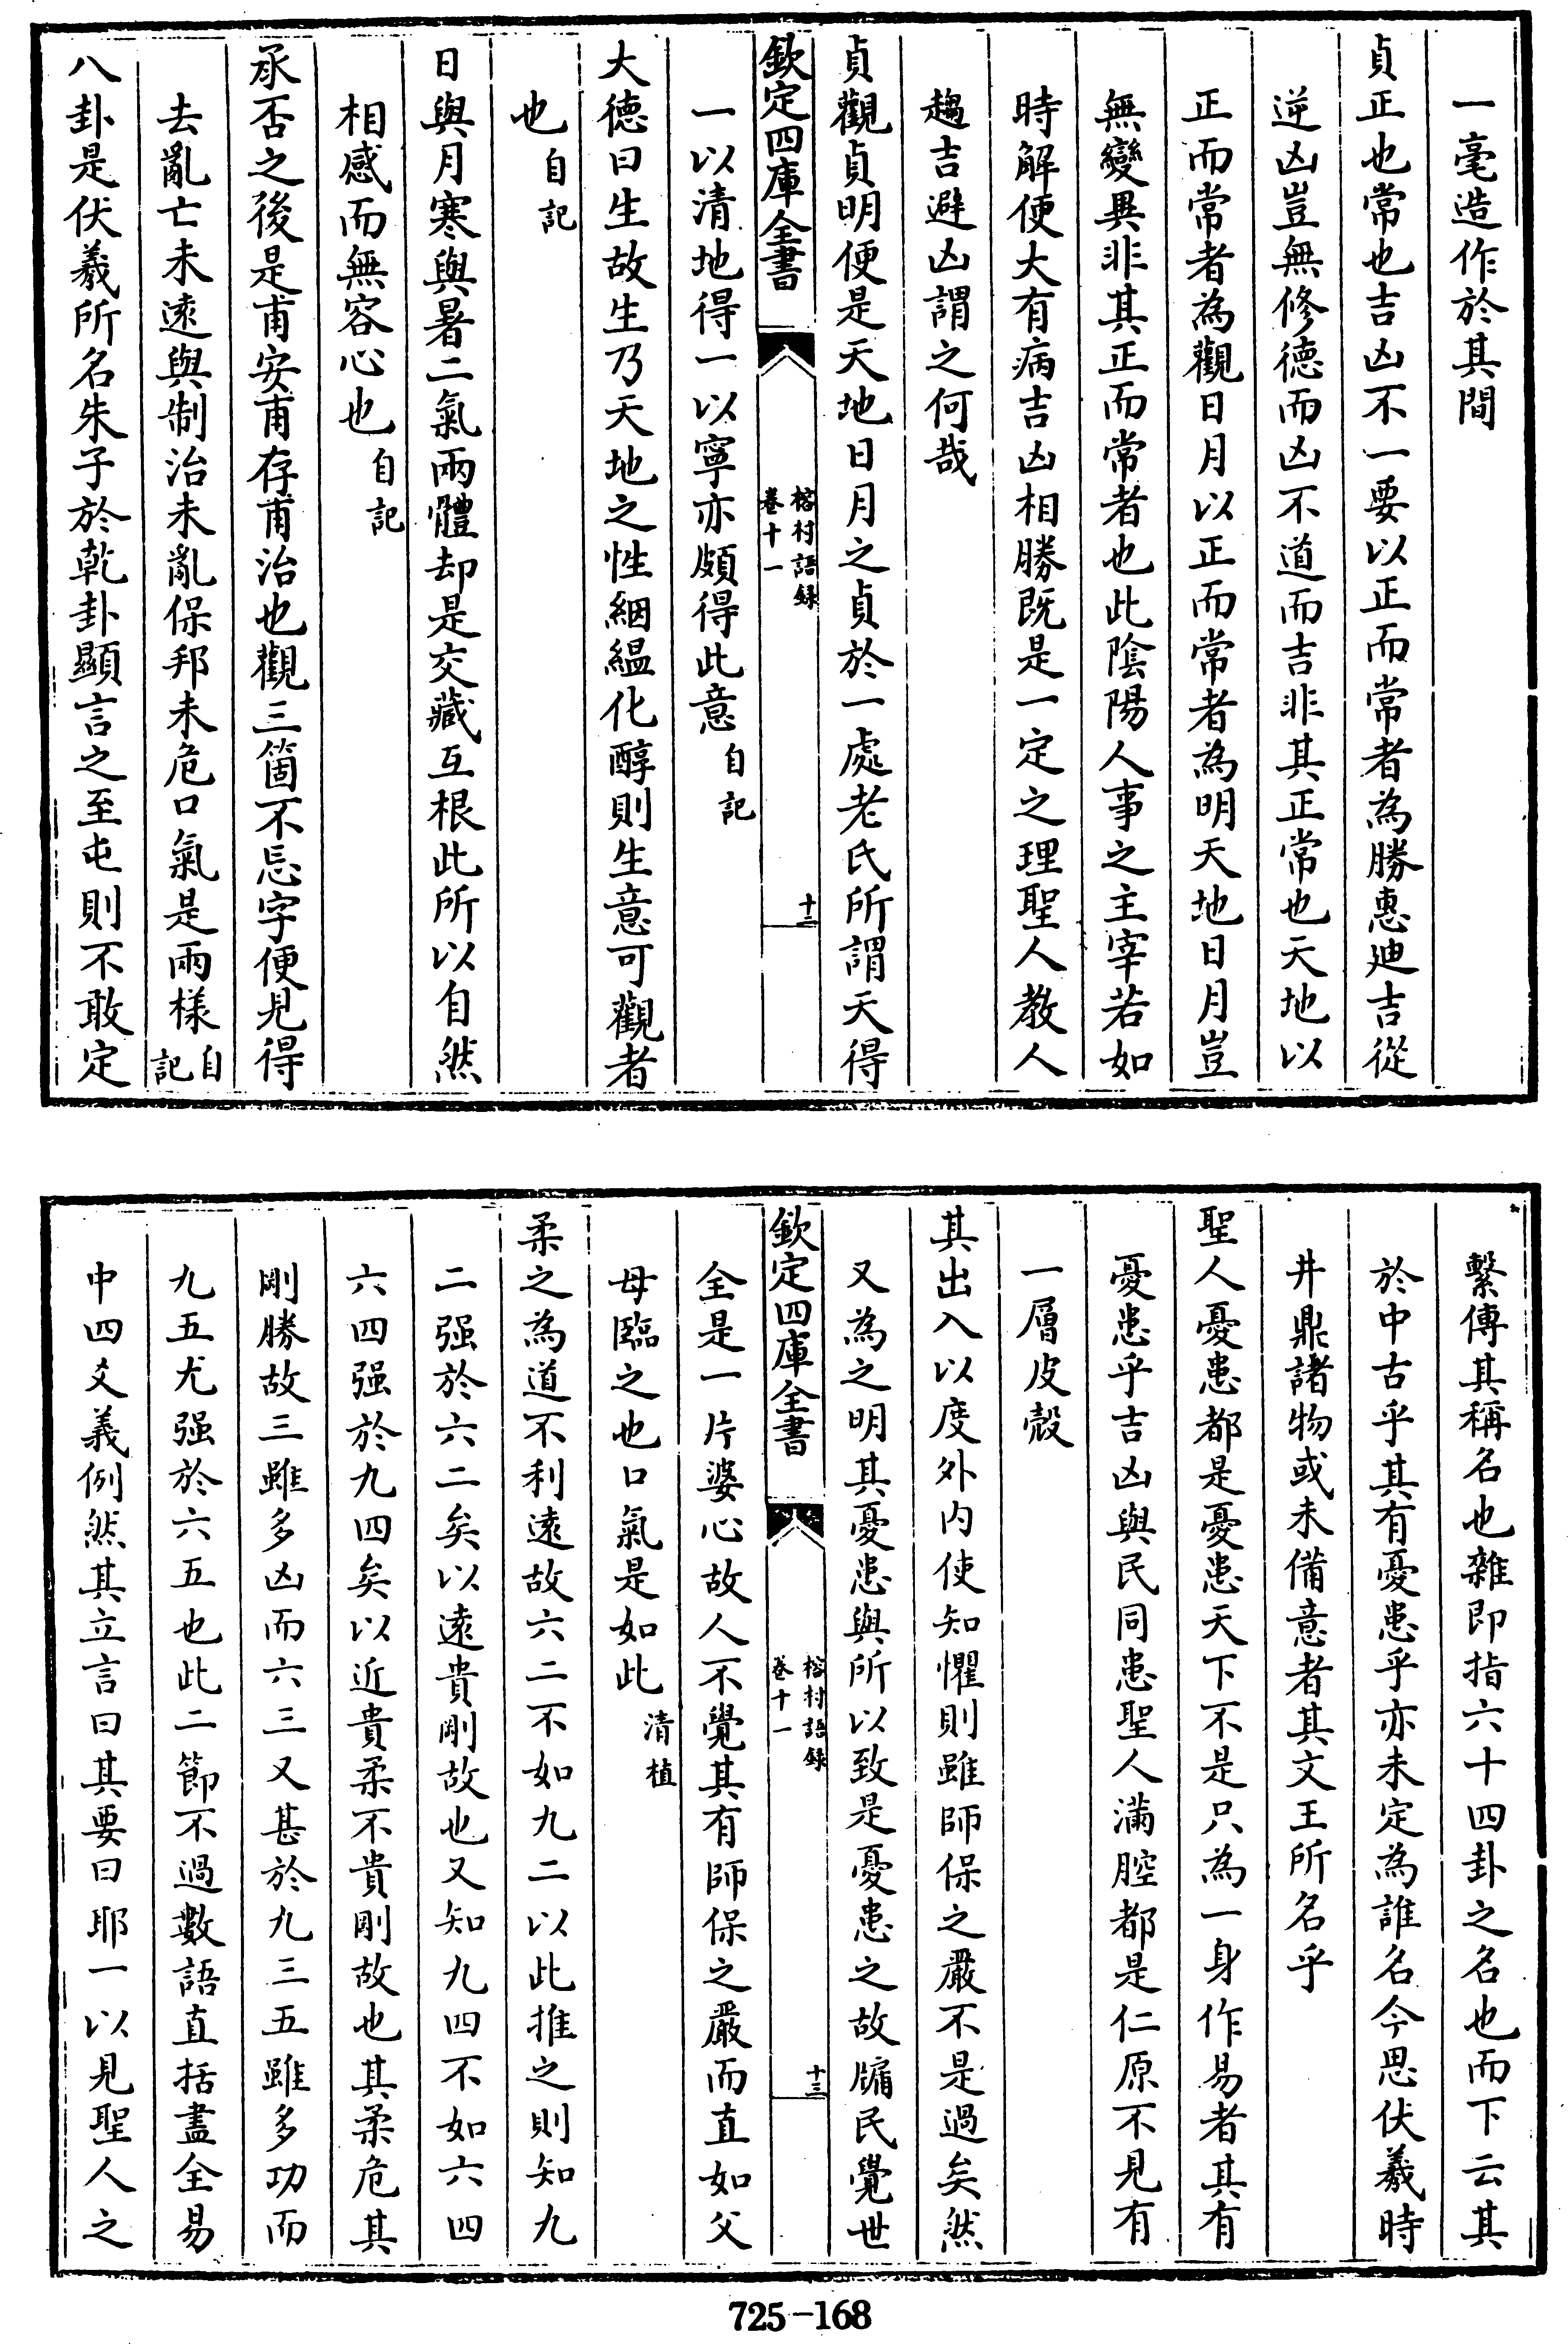 一毫造作於其間
貞正也常也吉凶不一要以正而常者為勝惠迪吉從
逆凶豈無修德而凶不道而吉非其正常也天地以
正而常者為觀日月以正而常者為明天地日月豈
無變異非其正而常者也此陰陽人事之主宰若如
時解便大有病吉凶相勝既是一定之理聖人教人
趨吉避凶謂之何哉
貞觀貞明便是天地日月之貞於一處老氏所謂天得
欽定四庫全書
榕村語録
卷十一
十二
一以清地得一以寧亦頗得此意自記
大德曰生故生乃天地之性絪縕化醇則生意可觀者
也自記
日與月寒與暑二氣兩體却是交藏互根此所以自然
相感而無容心也自記
承否之後是甫安甫存甫治也觀三箇不忘字便見得
去亂亡未遠與制治未亂保邦未危口氣是兩樣自記
八卦是伏羲所名朱子於乾卦顯言之至屯則不敢定
繫傳其稱名也雜即指六十四卦之名也而下云其
於中古乎其有憂患乎亦未定為誰名今思伏羲時
井鼎諸物或未備意者其文王所名乎
聖人憂患都是憂患天下不是只為一身作易者其有
憂患乎吉凶與民同患聖人滿腔都是仁原不見有
一層皮殼
其出入以度外内使知懼則雖師保之嚴不是過矣然
又為之明其憂患與所以致是憂患之故牖民覺世
欽定四庫全書
榕村語録
卷十一
十三
全是一片婆心故人不覺其有師保之嚴而直如父
母臨之也口氣是如此清植
柔之為道不利遠故六二不如九二以此推之則知九
二强於六二矣以遠貴剛故也又知九四不如六四
六四强於九四矣以近貴柔不貴剛故也其柔危其
剛勝故三雖多凶而六三又甚於九三五雖多功而
九五尤强於六五也此二節不過數語直括盡全易
中四爻義例然其立言曰其要曰耶一以見聖人之
725-168